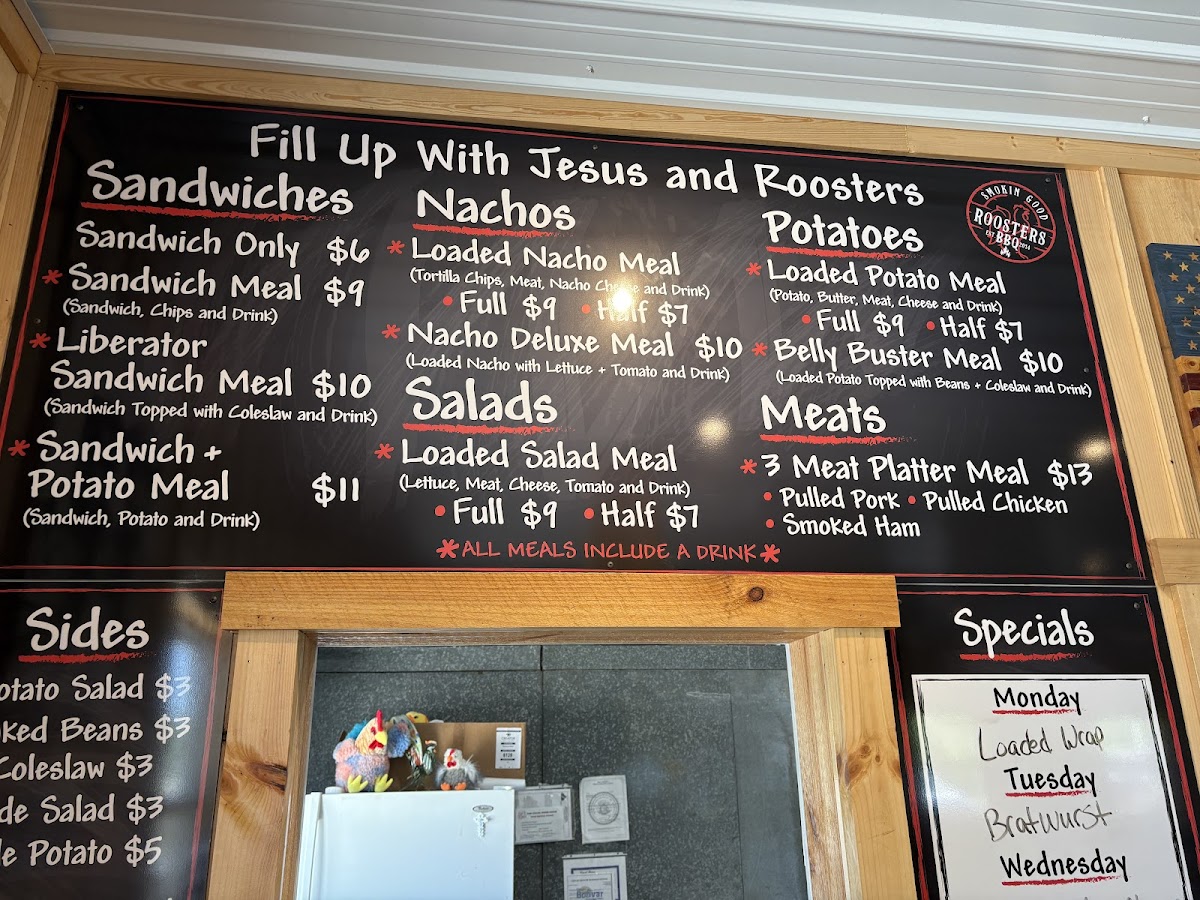 Fill Up With Jesus and Roosters
Sandwiches
Sandwich Only $6
* Sandwich Meal $9
(Sandwich, Chips and Drink)
* Liberator
Sandwich Meal $10
(Sandwich Topped with Coleslaw and Drink)
* Sandwich +
Potato Meal $11
(Sandwich, Potato and Drink)
Nachos
* Loaded Nacho Meal
(Tortilla Chips, Meat, Nacho Cheese and Drink)
• Full $9 • Half $7
* Nacho Deluxe Meal $10
(Loaded Nacho with Lettuce + Tomato and Drink)
Salads
* Loaded Salad Meal
(Lettuce, Meat, Cheese, Tomato and Drink)
• Full $9 • Half $7
SMOKIN GOOD
ROOSTERS
BBQ
Potatoes
* Loaded Potato Meal
(Potato, Butter, Meat, Cheese and Drink)
• Full $9 • Half $7
* Belly Buster Meal $10
(Loaded Potato Topped with Beans + Coleslaw and Drink)
Meats
* 3 Meat Platter Meal $13
• Pulled Pork • Pulled Chicken
• Smoked Ham
* ALL MEALS INCLUDE A DRINK *
Sides
otato Salad $3
ked Beans $3
Coleslaw $3
de Salad $3
le Potato $5
Specials
Monday
Loaded Wrap
Tuesday
Bratwurst
Wednesday